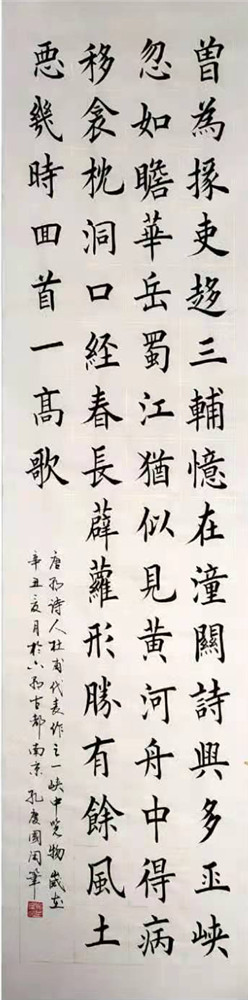 曾為掾吏趍三輔憶在潼關詩興多巫峽
忽如瞻華岳蜀江猶似見黃河舟中得病
移衾枕洞口経春長薜蘿形勝有餘風土
悪幾時囬首一髙歌
唐朝诗人杜甫代表作之一峡中览物歲在
辛丑夏月於六朝古都南京孔慶國筆